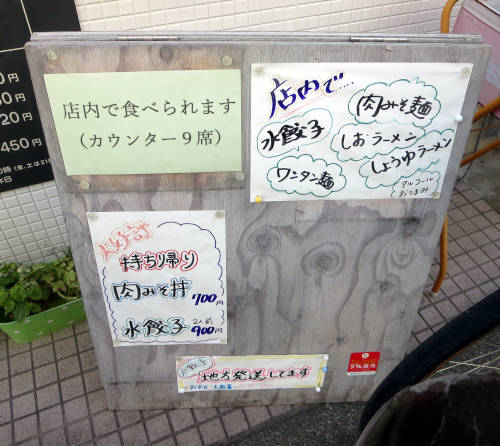 店内で食べられます
(カウンター9席)
店内で....
肉みそ麺
水餃子
しおラーメン
しょうゆラーメン
ワンタン麺
アルコール
おつまみ
大好評
持ち帰り
肉みそ丼 700円
水餃子 2人前 900円
水ぎょうざ
地方発送してます
5%還元
円
20円
450円